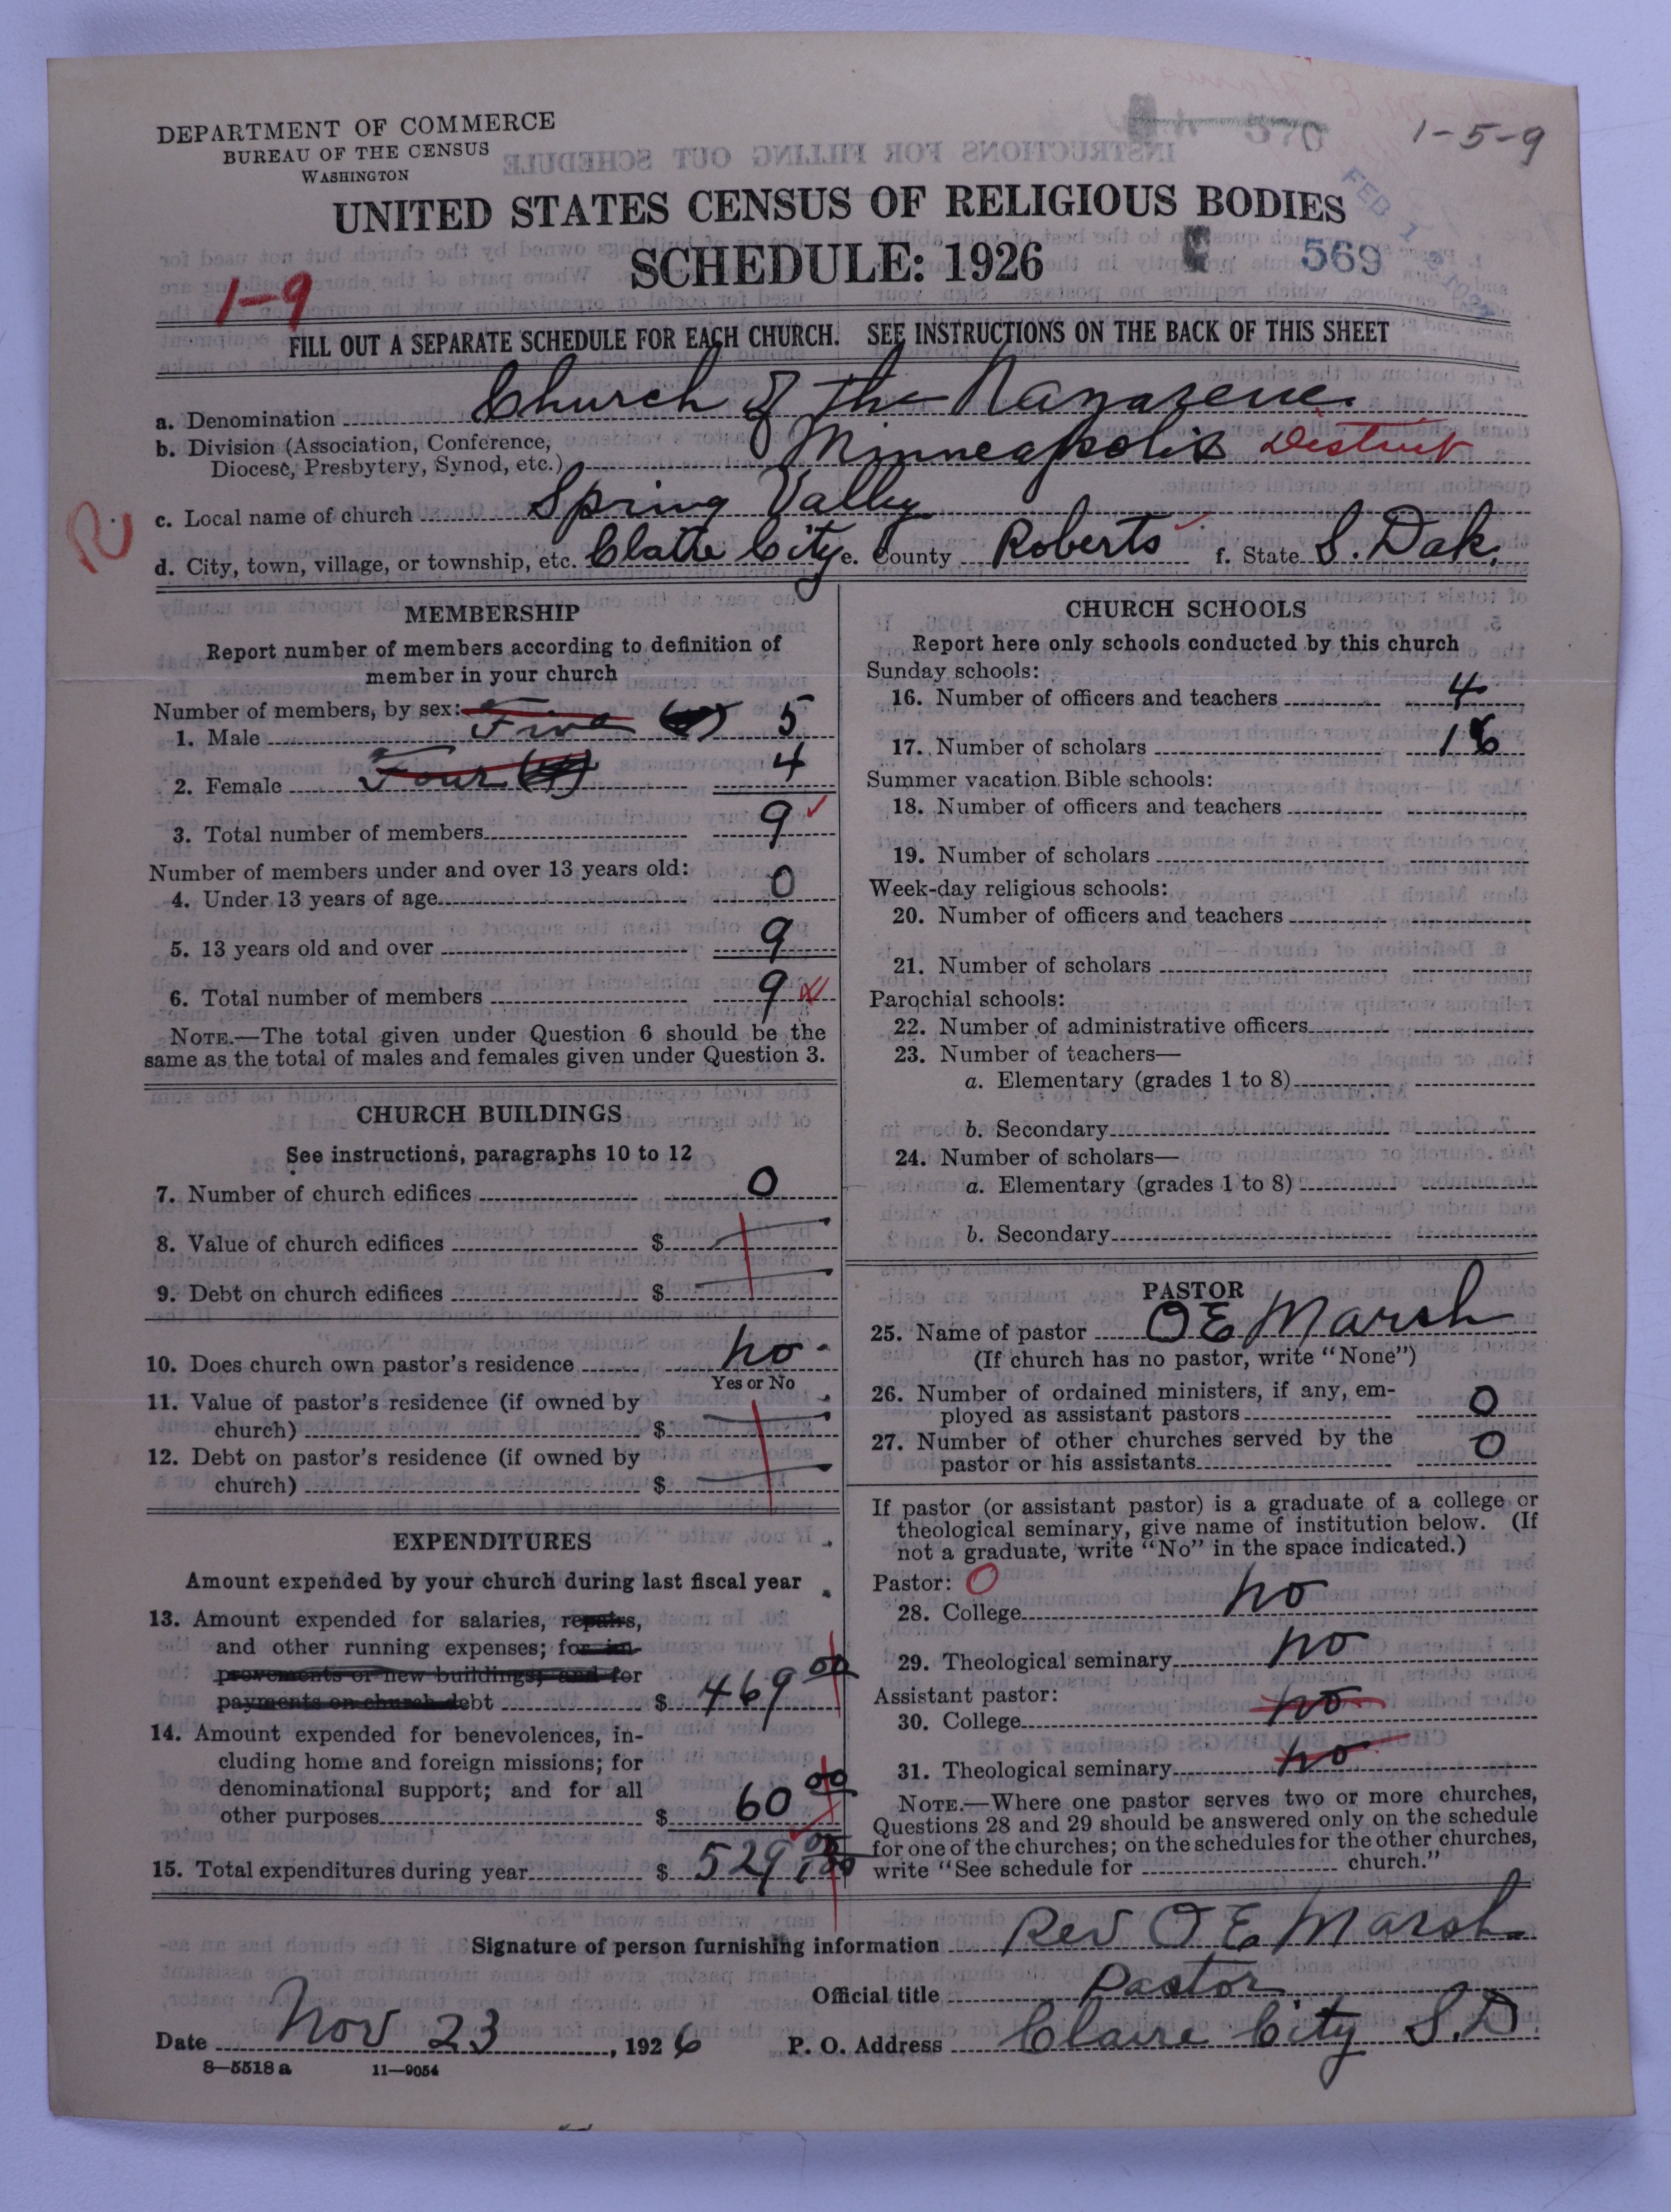 DEPARTMENT OF COMMERCE
BUREAU OF THE CENSUS
WASHINGTON
570
1-5-9
UNITED STATES CENSUS OF RELIGIOUS BODIES
SCHEDULE: 1926
569
1-9
FILL OUT A SEPARATE SCHEDULE FOR EACH CHURCH. SEE INSTRUCTIONS ON THE BACK OF THIS SHEET
a. Denomination Church of the Nazarene.
b. Division (Association, Conference, Diocese, Presbytery, Synod, etc.) Minneapolis District
R.
c. Local name of church Spring Valley
d. City, town, village, or township, etc. Claire City e. County Roberts f. State S. Dak.
MEMBERSHIP
Report number of members according to definition of
member in your church
Number of members, by sex:
1. Male Five 5
2. Female Four (4) 4
3. Total number of members 9
Number of members under and over 13 years old:
4. Under 13 years of age 0
5. 13 years old and over 9
6. Total number of members 9
NOTE.—The total given under Question 6 should be the
same as the total of males and females given under Question 3.
CHURCH BUILDINGS
See instructions, paragraphs 10 to 12
7. Number of church edifices 0
8. Value of church edifices $
9. Debt on church edifices $
10. Does church own pastor's residence no
Yes or No
11. Value of pastor's residence (if owned by
church) $
12. Debt on pastor's residence (if owned by
church) $
EXPENDITURES
Amount expended by your church during last fiscal year
13. Amount expended for salaries, repairs,
and other running expenses; for im-
provements or new buildings; and for
payments on church debt $ 469 00
14. Amount expended for benevolences, in-
cluding home and foreign missions; for
denominational support; and for all
other purposes $ 60 00
15. Total expenditures during year $ 529.00
CHURCH SCHOOLS
Report here only schools conducted by this church
Sunday schools:
16. Number of officers and teachers 4
17. Number of scholars 16
Summer vacation Bible schools:
18. Number of officers and teachers
19. Number of scholars
Week-day religious schools:
20. Number of officers and teachers
21. Number of scholars
Parochial schools:
22. Number of administrative officers
23. Number of teachers—
a. Elementary (grades 1 to 8)
b. Secondary
24. Number of scholars—
a. Elementary (grades 1 to 8)
b. Secondary
PASTOR
25. Name of pastor O E Marsh
(If church has no pastor, write "None")
26. Number of ordained ministers, if any, em-
ployed as assistant pastors 0
27. Number of other churches served by the
pastor or his assistants 0
If pastor (or assistant pastor) is a graduate of a college or
theological seminary, give name of institution below. (If
not a graduate, write "No" in the space indicated.)
Pastor: 0
28. College no
29. Theological seminary no
Assistant pastor:
30. College no
31. Theological seminary no
NOTE.—Where one pastor serves two or more churches,
Questions 28 and 29 should be answered only on the schedule
for one of the churches; on the schedules for the other churches,
write "See schedule for church."
Signature of person furnishing information Rev O E Marsh
Official title Pastor
Date Nov 23, 1926 P. O. Address Claire City S.D.
8-5518 a 11-9054